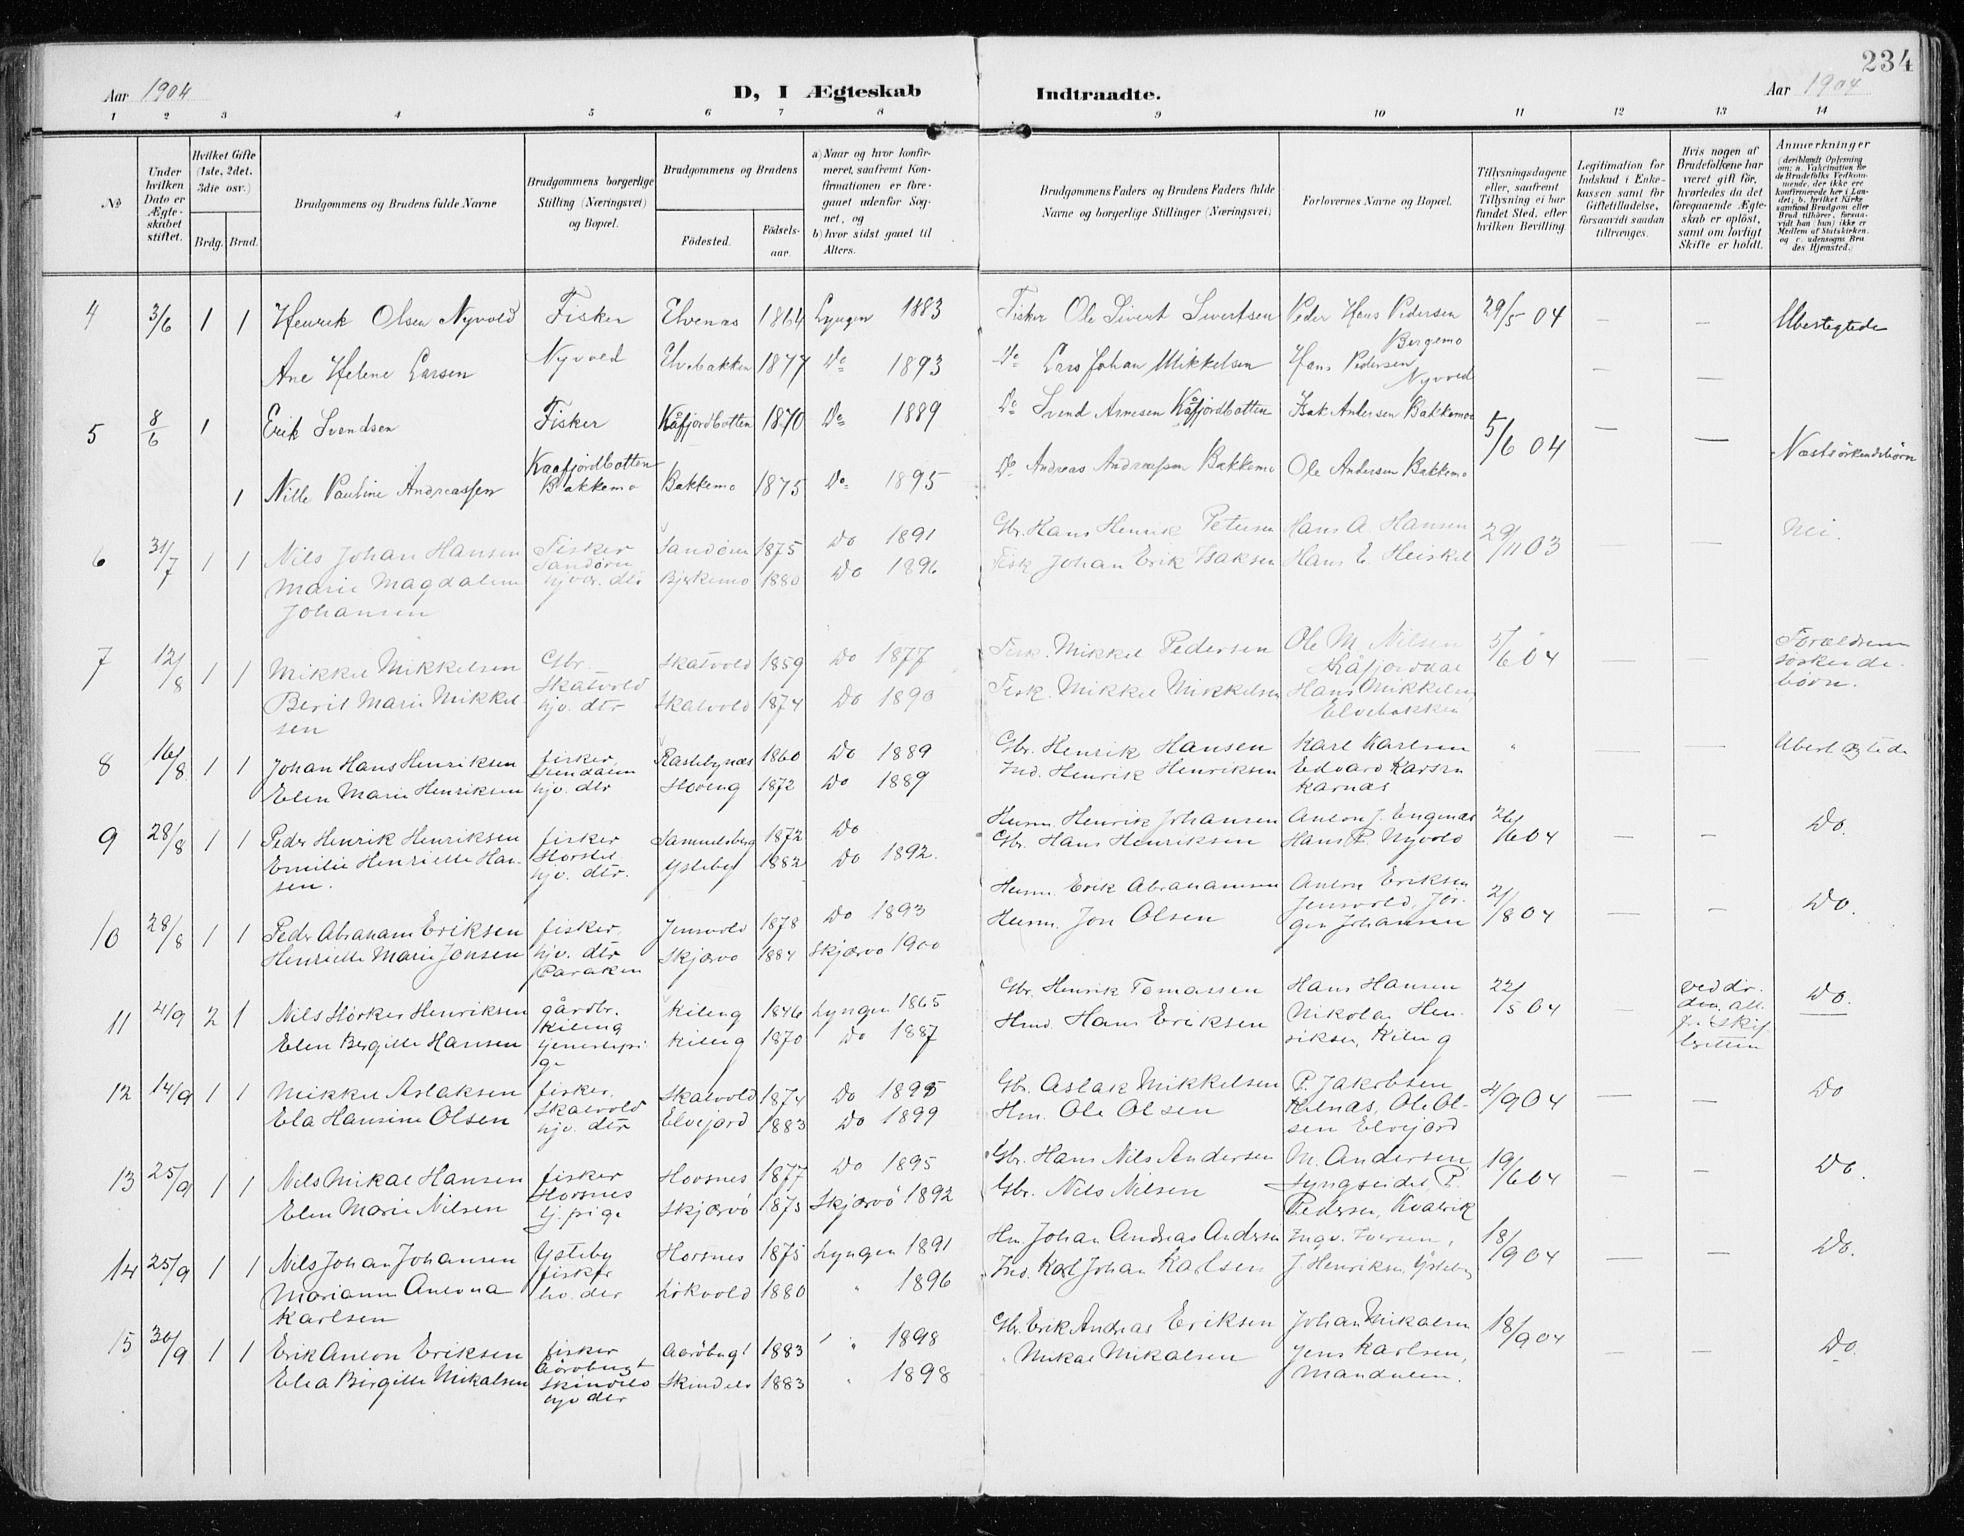 234
Aar 1904
D, I Ægteskab Indtraadte.
Aar 1904
1 2 3 4 5 6 7 8 9 10 11 12 13 14
№
Under hvilken Dato er Ægteskabet stiftet.
Hvilket Gifte (1ste, 2det, 3die osv.)
Brdg. Brud.
Brudgommens og Brudens fulde Navne
Brudgommens borgerlige Stilling (Næringsvei) og Bopæl.
Brudgommens og Brudens
Födested.
Födselsaar.
a) Naar og hvor konfirmeret, saafremt Konfirmationen er foregaaet udenfor Sognet, og
b) hvor sidst gaaet til Alters.
Brudgommens Faders og Brudens Faders fulde Navne og borgerlige Stillinger (Næringsvei)
Forlovernes Navne og Bopæl.
Tillysningsdagene eller, saafremt Tillysning ei har fundet Sted, efter hvilken Bevilling.
Legitimation for Indskud i Enkekassen samt for Giftetilladelse, forsaavidt saadan tiltrænges.
Hvis nogen af Brudefolkene har været gift før, hvorledes da det foregaaende Ægteskab er oplöst, samt om lovligt Skifte er holdt.
Anmærkninger
4 3/6 1 1 Henrik Olsen Nyvold Fisker Elvenas 1864 Lyngen 1883 Fisker Ole Sivert Sivertsen Peder Hans Pedersen Bergemo 29/5 04 — — Ubeslegtede
Ane Helene Larsen Nyvold Elvebakken 1877 Do 1893 Do Lars Johan Mikkelsen Hans Pedersen Nyvold — —
5 8/6 1 Erik Svendsen Fisker Kåfjordbotten 1870 Do 1889 Do Svend Arnesen Kåfjordbotten Isak Andersen Bakkemo 5/6 04 — —
1 Nille Pauline Andreassen Kaafjordbotten Bakkemo Bakkemo 1875 Do 1895 Do Andreas Andreassen Bakkemo Ole Andersen Bakkemo Næstsöskendebörn
6 31/7 1 1 Nils Johan Hansen Fisker Sandören 1875 Do 1891 Gbr. Hans Henrik Petersen Hans A Hansen 29/11 03 Nei.
Marie Magdalene Johansen hjv. dtr Bjerkemo 1880 Do 1896 Fisk Johan Erik Isaksen Hans E. Heiskel
7 12/8 1 1 Mikkel Mikkelsen Gbr. Skatvold Skatvold 1859 Do 1877 Fisk. Mikkel Pedersen Ole M. Nilsen Kåfjorddal 5/6 04 Forældrene söskendebörn.
Berit Marie Mikkelsen hjv. dtr Skatvold 1874 Do 1890 Fisk. Mikkel Mikkelsen Hans Mikkelsen, Elvebakken
8 16/8 1 1 Johan Hans Henriksen fisker, Rastebynæs 1860 Do 1889 Gbr. Henrik Hansen Karl Karlsen " Ubeslægtede
Elen Marie Henriksen hjv. dtr 1872 Do 1889 Ind. Henrik Henriksen Edvard Karnæs
9 28/8 1 1 Peder Henrik Henriksen fisker Samuelsberg 1872 Do Husm. Henrik Johansen Anton J. Engenæs 26/6 04 — — Do.
Emilie Henriette Hansen. hjv. dtr. Ysteby 1882 Do 1892. Gbr. Hans Henriksen Hans P. Nyvold
10 28/8 1 1 Peder Abraham Eriksen fisker, Jensvold 1878 Do 1893 Husm. Erik Abrahamsen Anton Eriksen Jensvold, 21/8 04 — — Do.
Henriette Marie Jonsen hjv. dtr Skjærvö 1884 Skjærvö 1900 Husm. Jon Olsen Jörgen Johansen
11 4/9 2 1 Nils Hörker Henriksen gårdbr. Kileng Kileng 1846 Lyngen 1865 Gbr. Henrik Tomassen Hans Hansen 22/5 04 — Do.
Elen Bergitte Hansen tjenestepige Kileng 1870 Do 1887 Hans Eriksen Nikolai Henriksen, Kileng
12 14/9 1 1 Mikkel Aslaksen fisker, Skatvold Skatvold 1874 Do 1895 Gbr. Aslak Mikkelsen P. Jakobsen 4/9 04 — — Do
Ela Hansine Olsen hjv. dtr Elvejord 1883 Do 1899 Hm. Ole Olsen Ole Olsen Elvejord
13 25/9 1 1 Nils Mikal Hansen fisker Horsnes Horsnes 1877 Do 1895 Gbr. Hans Nils Andersen M. Andersen, Lyngseidet, 19/6 04 — — Do.
Elen Marie Nilsen tj. pige Skjærvö 1875 Skjærvö 1892 Gbr. Nils Nilsen P. Pedersen, Kvalvik
14 25/9 1 1 Nils Johan Johansen Ysteby fisker Horsnes 1875 Lyngen 1891 Hm. Johan Andreas Andersen Ingv. Iversen, 18/9 04 — — Do.
Mariann Antona Karlsen Lökvold 1880 " 1896 Ind. Karl Johan Karlsen J. Henriksen, Ysteby
15 30/9 1 1 Erik Anton Eriksen fisker Aaröbugt Aaröbugt 1883 " " 1898 Gbr. Erik Andreas Eriksen Johan Mikalsen 18/9 04 — — Do.
Elea Bergitte Mikalsen hjv dtr 1883 " 1898 " Mikal Mikalsen Jens Karlsen, Mandalen.